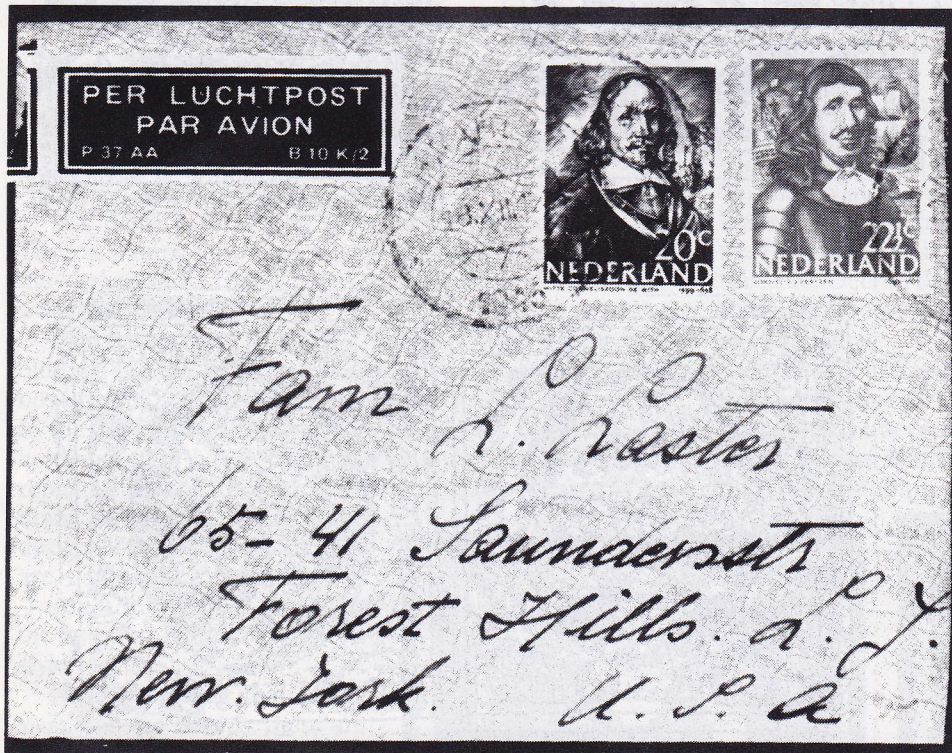 PER LUCHTPOST
PAR AVION
P 37 AA B 10 K/2
20c
NEDERLAND
22½c
NEDERLAND
Fam L. Lester
65-41 Saundersstr
Forest Hills. L. I.
New. York. U. S. A